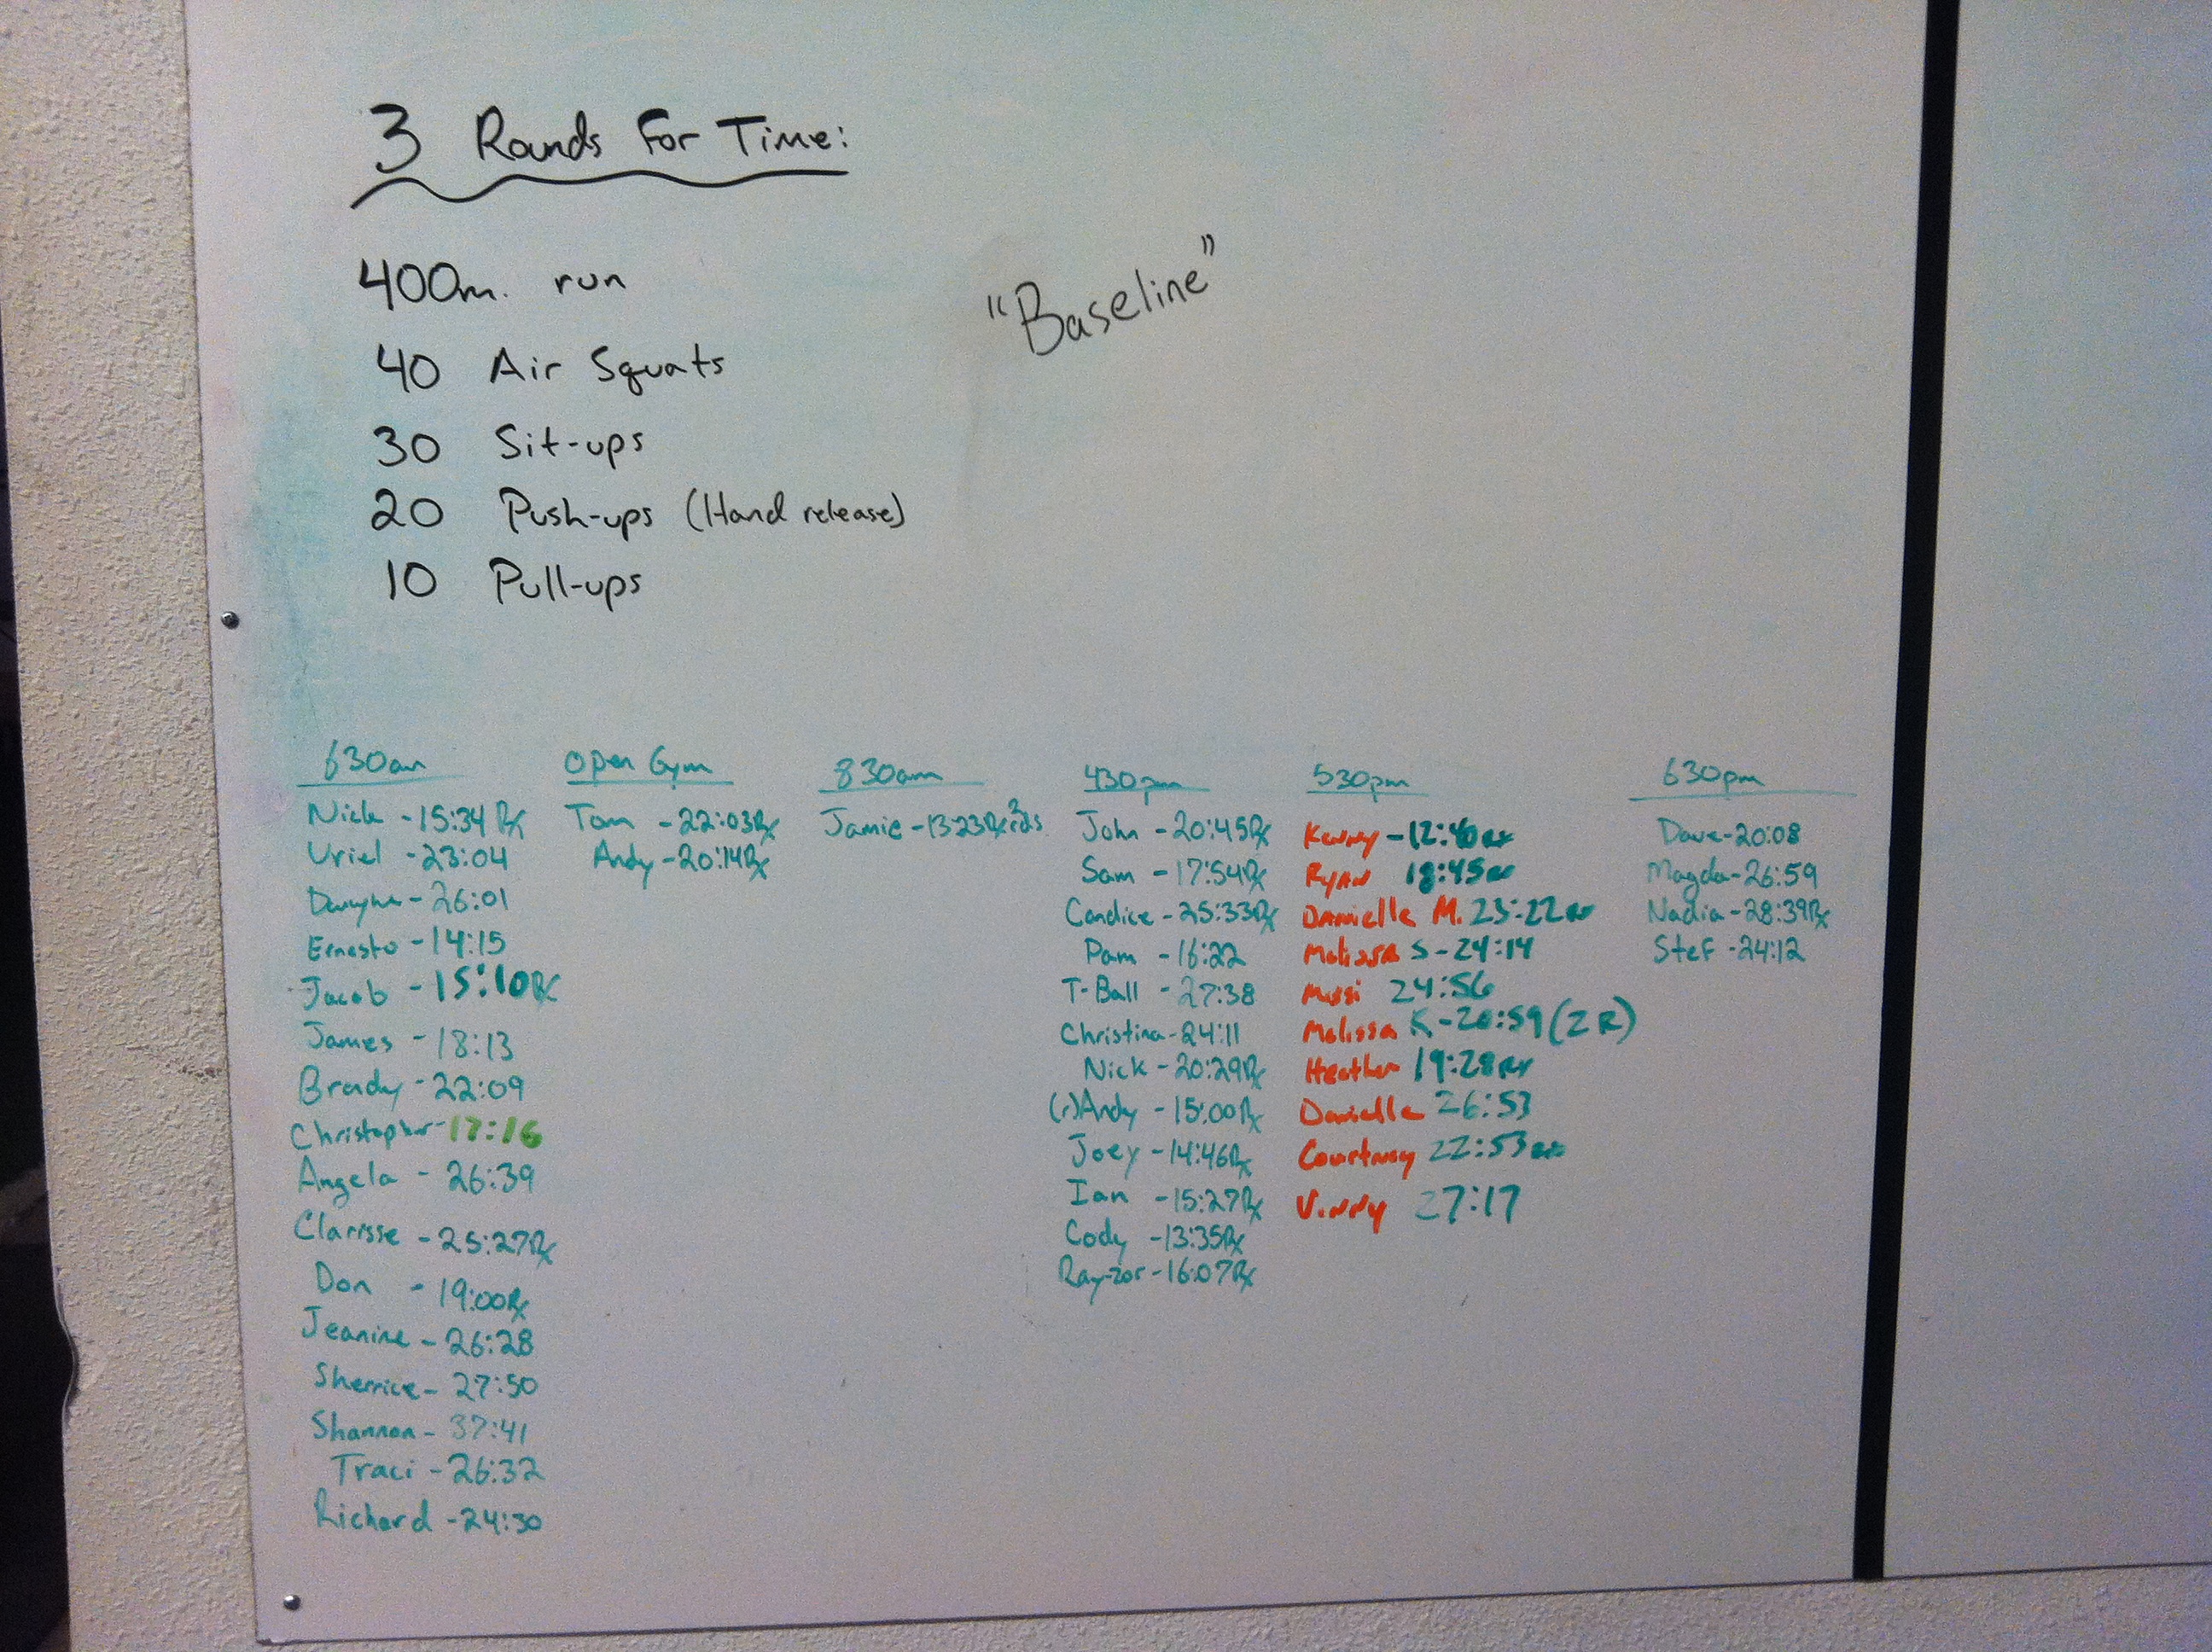 3 Rounds For Time:
400m. run
"Baseline"
40 Air Squats
30 Sit-ups
20 Push-ups (Hand release)
10 Pull-ups
630am
Nick - 15:34 Rx
Uriel - 23:04
- 26:01
Ernesto - 14:15
Jacob - 15:10 Rx
James - 18:13
Brady - 22:09
Christopher - 17:16
Angela - 26:39
Clarisse - 25:27 Rx
Don - 19:00 Rx
Jeanine - 26:28
Sherrice - 27:50
Shannon - 37:41
Traci - 26:32
Richard - 24:30
Open Gym
Tom - 22:03 Rx
Andy - 20:14 Rx
830am
Jamie - 13:23 Rx 3 rds
430pm
John - 20:45 Rx
Sam - 17:54 Rx
Candice - 25:33 Rx
Pam - 16:22
T-Ball - 27:38
Christina - 24:11
Nick - 20:29 Rx
(r)Andy - 15:00 Rx
Joey - 14:46 Rx
Ian - 15:27 Rx
Cody - 13:35 Rx
Ray-zor - 16:07 Rx
530pm
Kenny - 12:40 Rx
Ryan 18:45 Rx
Danielle M. 23:22 Rx
Melissa S - 24:14
24:56
Melissa K - 20:59 (2 R)
Heather 19:28 Rx
Danielle 26:53
Courtney 22:53 Rx
Vinny 27:17
630pm
Dave - 20:08
Magda - 26:59
Nadia - 28:39 Rx
Stef - 24:12